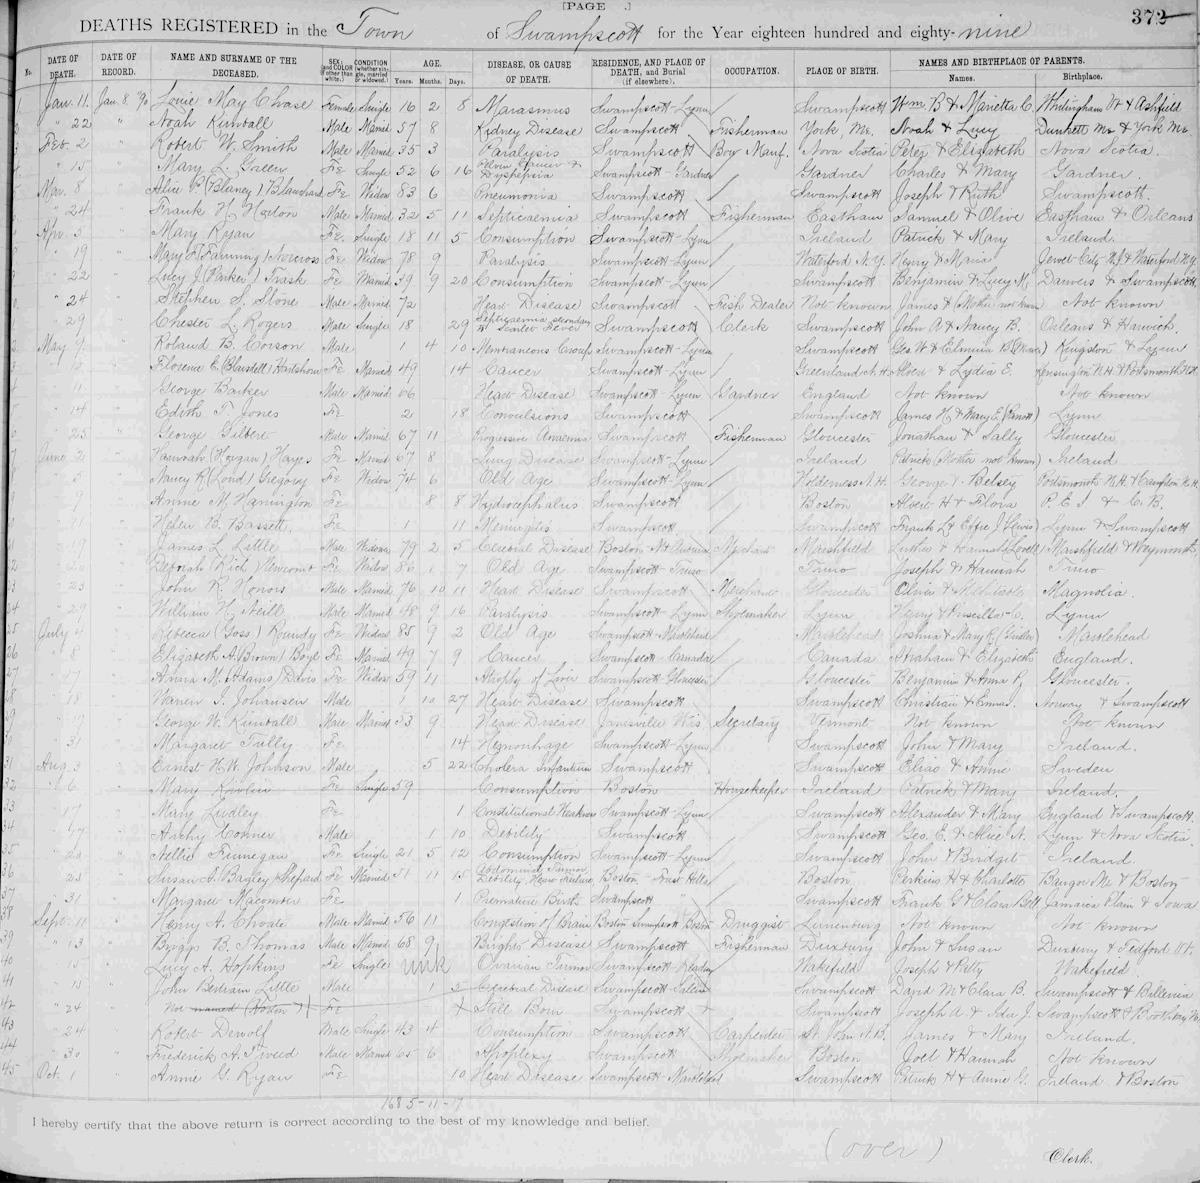 [PAGE .]
372
DEATHS REGISTERED in the Town of Swampscott for the Year eighteen hundred and eighty-nine
No. DATE OF DEATH. DATE OF RECORD. NAME AND SURNAME OF THE DECEASED. SEX; and COLOR (if other than white.) CONDITION (whether single, married or widowed.) AGE. Years. Months. Days. DISEASE, OR CAUSE OF DEATH. RESIDENCE, AND PLACE OF DEATH, and Burial (if elsewhere). OCCUPATION. PLACE OF BIRTH. NAMES AND BIRTHPLACE OF PARENTS. Names. Birthplace.
1 Jan. 11. Jan. 8 '90 Louie May Chase Female Single 16 2 8 Marasmus Swampscott-Lynn Swampscott Wm. B & Marietta C. & Ashfield
" 22 " Noah Kimball Male Married 57 8 Kidney Disease Swampscott Fisherman York, Me. Noah & Lucy Me & York Me
Feb. 2 " Robert W. Smith Male Married 35 3 Paralysis Swampscott Box Manf. Nova Scotia Perez & Elizabeth Nova Scotia.
" 15 " Mary L. Green Fe Single 52 6 16 Cancer & Dyspepsia Swampscott-Gardner Gardner Charles & Mary Gardner.
Mar. 8 " Alice P (Blaney) Blanchard Fe Widow 83 6 Pneumonia Swampscott Swampscott Joseph & Ruth Swampscott.
" 24 " Frank H. Horton Male Married 32 5 11 Septicaemia Swampscott Fisherman Eastham Samuel & Olive Eastham & Orleans
Apr. 5 " Mary Ryan Fe. Single 18 11 5 Consumption Swampscott-Lynn Ireland Patrick & Mary Ireland.
" 19 " Mary (Fanning) Norcross Fe Widow 78 9 Paralysis Swampscott-Lynn Waterford N.Y. Henry & Maria Jewet City & Waterford N.Y.
" 22 " Lucy J (Parker) Trask Fe Married 39 9 20 Consumption Swampscott-Lynn Swampscott Benjamin & Lucy M. Danvers & Swampscott
" 24 " Stephen S. Stone Male Married 72 Heart Disease Swampscott Fish Dealer Not known James & (Mother not known) Not known
" 29 " Chester L. Rogers Male Single 18 29 Septicaemia secondary to Scarlet Fever Swampscott Clerk Swampscott John A & Nancy B. Orleans & Harwich.
May 9 " Roland B. Corson Male 1 4 10 Membraneous Croup Swampscott-Lynn Swampscott Geo. W & Elmira B. Kingston & Lynn
" " Florence E. (Blaisdell) Hartshorn Fe Married 49 14 Cancer Swampscott-Lynn Greenland N.H. Albert & Lydia E. Kensington N.H. & Portsmouth N.H.
" 11 " George Barker Male Married 66 Heart Disease Swampscott-Lynn Gardner England Not known Not known
" 14 " Edith F. Jones Fe 2 18 Convulsions Swampscott Swampscott James H. & Mary E. Lynn
" 25 " George Gilbert Male Married 67 11 Progressive Anaemia Swampscott Fisherman Gloucester Jonathan & Sally Gloucester
June 2 " Hannah (Horgan) Hayes Fe Married 67 8 Lung Disease Swampscott-Lynn Ireland Patrick (Mother not known) Ireland
" 5 " Nancy R. (Lord) Gregory Fe Widow 74 6 Old Age Swampscott-Lynn Holderness N.H. George & Betsey Portsmouth N.H. & Campton N.H.
" 9 " Annie M. Harrington Fe 8 8 Hydrocephalus Swampscott Boston Albert H & Flora P.E.I & C.B.
" 11 " Helen B. Bassett Fe 1 11 Meningitis Swampscott Swampscott Frank L & Effie J (Lewis) Lynn & Swampscott
" 19 " James L. Little Male Widower 79 2 3 Cerebral Disease Boston Mt Auburn Merchant Marshfield Luther & Hannah (Lovell) Marshfield & Weymouth
" 20 " Deborah (Rich) Newcomb Fe Widow 86 1 7 Old Age Swampscott-Truro Truro Joseph & Hannah Truro
" 23 " John R. Honors Male Married 76 10 11 Heart Disease Swampscott Merchant Gloucester Oliver & Mehitable Magnolia.
24 " 29 " William H. Neill Male Married 48 9 16 Paralysis Swampscott-Lynn Shoemaker Lynn Henry & Priscilla C. Lynn
25 July 4 " Rebecca (Doss) Roundy Fe Widow 85 9 2 Old Age Swampscott-Marblehead Marblehead Joshua & Mary R. Marblehead
26 " 8 " Elizabeth A. (Brown) Boyle Fe Married 49 7 9 Cancer Swampscott-Canada Canada Abraham & Elizabeth England.
27 " 17 " Anna M. (Adams) Davis Fe Widow 59 11 Atrophy of Liver Swampscott-Gloucester Gloucester Benjamin & Anna P. Gloucester.
28 " 18 " Warren J. Johansen Male 1 10 27 Heart Disease Swampscott Swampscott Christian & Emma J. Norway & Swampscott
" " George W. Kimball Male Married 53 9 Heart Disease Janesville Wis Secretary Vermont Not known Not known
30 " 31 " Margaret Tulley Fe 14 Hemorrhage Swampscott-Lynn Swampscott John & Mary Ireland.
31 Aug. 3 " Ernest H.W. Johnson Male 5 22 Cholera infantum Swampscott Swampscott Elias & Annie Sweden
32 " 6 " Mary Fe Single 59 Consumption Boston Housekeeper Ireland Patrick & Mary Ireland.
33 " 17 " Mary Ludley Fe 1 Constitutional Weakness Swampscott-Lynn Swampscott Alexander & Mary England & Swampscott.
34 " 17 " Archy Conner Male 1 10 Debility Swampscott Swampscott Geo. E. & Alice A. Lynn & Nova Scotia.
35 " 20 " Nellie Finnegan Fe Single 21 5 12 Consumption Swampscott-Lynn Swampscott John & Bridget Ireland.
36 " 25 " Susan A. (Bagley) Shepard Fe Married 51 1 15 Abdominal Tumor, Debility, Heart Failure Boston-Forest Hills Boston Perkins H & Charlotte Bangor Me & Boston
37 " 31 " Margaret Macomber Fe 1 Premature Birth Swampscott " Swampscott Frank G & Clara Bell Jamaica Plain & Iowa
38 Sept. 11 " Henry A. Choate Male Married 56 11 Congestion of Brain Boston Swampscott Boston Druggist Lunenburg Not known Not known
39 " 13 " Briggs B. Thomas Male Married 68 9 Bright's Disease Swampscott Fisherman Duxbury John & Susan Duxbury & Tedford Vt.
40 " 15 " Lucy A. Hopkins Fe Single unk Ovarian Tumor Swampscott-Reading Wakefield Joseph & Patty Wakefield.
41 " 15 " John Bertram Little Male 1 2 Cerebral Disease Swampscott-Salem Swampscott David M & Clara B. Swampscott & Billerica
42 " 24 " Not named (Horton) Fe + Still Born Swampscott + Swampscott Joseph A & Ida J. Swampscott &
43 " 24 " Robert Dewolf Male Single 43 4 Consumption Swampscott Carpenter St. John N.B. James & Mary Ireland.
44 " 30 " Frederick A. Tweed Male Married 65 6 Apoplexy Swampscott Shoemaker Boston Joel & Hannah Not known
45 Oct. 1 " Annie G. Ryan Fe 10 Heart Disease Swampscott Marblehead Swampscott Patrick H & Annie G. Ireland & Boston
1685-11-17
I hereby certify that the above return is correct according to the best of my knowledge and belief.
(over)
Clerk.